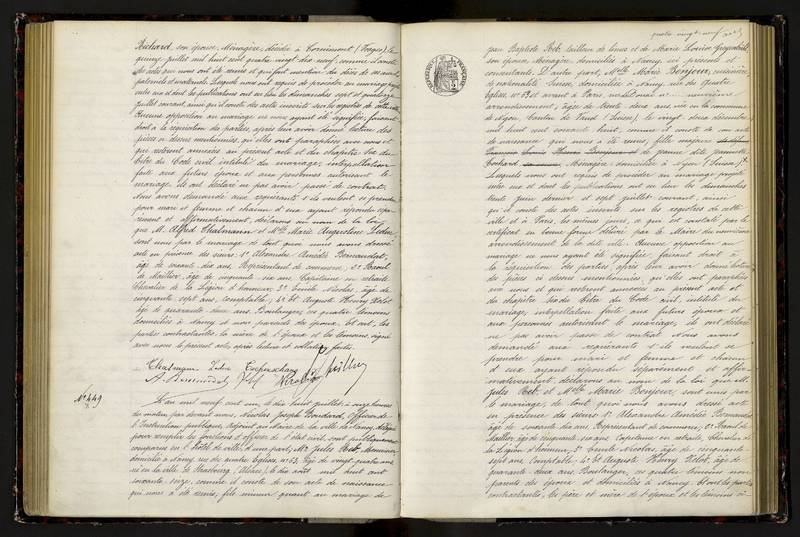 Richard, son épouse, Ménagère, décédée à Cornimont (Vosges) le
quinze juillet mil huit cent quatre vingt dix neuf, comme il conste
des actes qui nous ont été remis et qui font mention du décès de ses aïeuls
paternels et maternels. Lesquels nous ont requis de procéder au mariage projeté
entre eux et dont les publications ont eu lieu les dimanches sept et quatorze
juillet courant, ainsi qu'il conste des actes inscrits sur les registres de cette ville
Aucune opposition au mariage ne nous ayant été signifiée, faisant
droit à la réquisition des parties, après leur avoir donné lecture des
pièces ci dessus mentionnées, qu'elles ont paraphées avec nous et
qui resteront annexées au présent acte et du chapitre six du
titre du Code civil intitulé du mariage, interpellation
faite aux futurs époux et aux personnes autorisant le
mariage, ils ont déclaré ne pas avoir passé de contrat.
Nous avons demandé aux requérants s'ils veulent se prendre
pour mari et femme et chacun d'eux ayant répondu séparé-
ment et affirmativement, déclarons au nom de la loi
que M. Alfred Thalmann et Mlle Marie Augustine Leduc
sont unis par le mariage, de tout quoi nous avons dressé
acte en présence des sieurs 1° Alexandre Amédée Bernardot,
âgé de soixante dix ans, Représentant de commerce, 2° Raoul
de Maillier, âgé de cinquante six ans, Capitaine en retraite
Chevalier de la Légion d'honneur, 3° Emile Nicolas, âgé de
cinquante sept ans, Comptable, 4° et Auguste Henry Hof,
âgé de quarante deux ans, Boulanger, ces quatre témoins
domiciliés à Nancy et non parents des époux. Et ont, les
parties contractantes, la mère de l'épouse et les témoins, signé
avec nous le présent acte, après lecture et collation faites.
Thalmann Leduc
N° 449
L'an mil neuf cent un, le dix huit juillet, à onze heures
du matin par devant nous, Nicolas Joseph Boudard, Officier de
l'Instruction publique, adjoint au Maire de la ville de Nancy, délégué
pour remplir les fonctions d'officier de l'état civil, sont publiquement
comparus en l'hôtel de ville, d'une part, Mr Jules Reb,
domicilié à Nancy, rue des quatre Eglises, n° 63, âgé de vingt quatre ans
né en la ville de Strasbourg (Alsace), le dix août mil huit cent
soixante seize, comme il conste de son acte de naissance
qui nous a été remis, fils mineur quant au mariage de
quatre vingt neuf
Jean Baptiste Reb, tailleur de limes et de Marie Louise
son épouse, Ménagère, domiciliés à Nancy, ici présents et
consentants. D'autre part, Mlle Marie Bonjour, cuisinière,
de nationalité Suisse, domiciliée à Nancy, rue des Quatre
Eglises, N° 63 et avant à Paris, neuvième
arrondissement, âgée de trente deux ans, née en la commune
de Nyon, Canton de Vaud (Suisse), le vingt deux décembre
mil huit cent soixante huit, comme il conste de son acte
de naissance qui nous a été remis, fille majeure
de Jeanne
Ménagère, domiciliée à Nyon (Suisse).
Lesquels nous ont requis de procéder au mariage projeté
entre eux et dont les publications ont eu lieu les dimanches
trente juin dernier et sept juillet courant ainsi
qu'il conste des actes inscrits sur les registres de cette
ville et à Paris, les mêmes jours, ce qui est constaté par le
certificat en bonne forme délivré par le Maire du neuvième
arrondissement de la dite ville. Aucune opposition au
mariage ne nous ayant été signifiée, faisant droit à
la réquisition des parties, après leur avoir donné lecture
des pièces ci dessus mentionnées, qu'elles ont paraphées
avec nous et qui resteront annexées au présent acte et
du chapitre six du titre du Code civil, intitulé du
mariage, interpellation faite aux futurs époux et
aux personnes autorisant le mariage, ils ont déclaré
ne pas avoir passé de contrat. Nous avons
demandé aux requérants s'ils veulent se
prendre pour mari et femme et chacun
d'eux ayant répondu séparément et affir-
mativement, déclarons au nom de la loi que M.
Jules Reb et Mlle Marie Bonjour, sont unis par
le mariage, de tout quoi nous avons dressé acte
en présence des sieurs 1° Alexandre Amédée Bernardot
âgé de soixante dix ans, Représentant de commerce, 2° Raoul de
Maillier, âgé de cinquante six ans, Capitaine en retraite, Chevalier de
la Légion d'honneur, 3° Emile Nicolas, âgé de cinquante
sept ans, Comptable, 4° et Auguste Henry Hof, âgé de
quarante deux ans, Boulanger, ces quatre témoins non
parents des époux et domiciliés à Nancy. Et ont les parties
contractantes, les père et mère de l'époux et les témoins